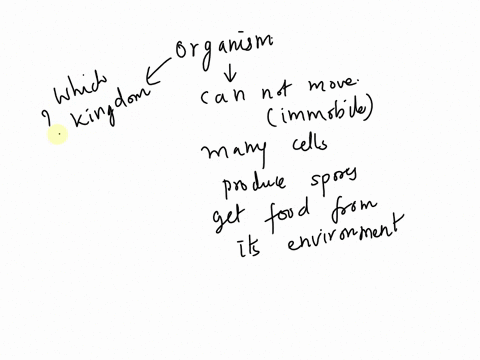 Organism
Which
? Kingdom
can not move.
(immobile)
many cells
produce spores
get food from
its environment